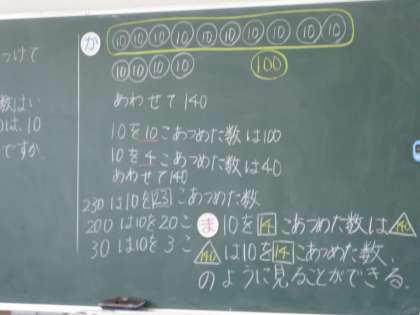 つけて
数はい
のは、10
ですか
か
10 10 10 10 10 10 10 10 10 10
10 10 10 10 100
あわせて 140
10を10こあつめた数は100
10を4こあつめた数は40
あわせて140
230は10を23こあつめた数
200は10を20こ
30は10を3こ
ま 10を14こあつめた数は140
140は10を14こあつめた数、
のように見ることができる。